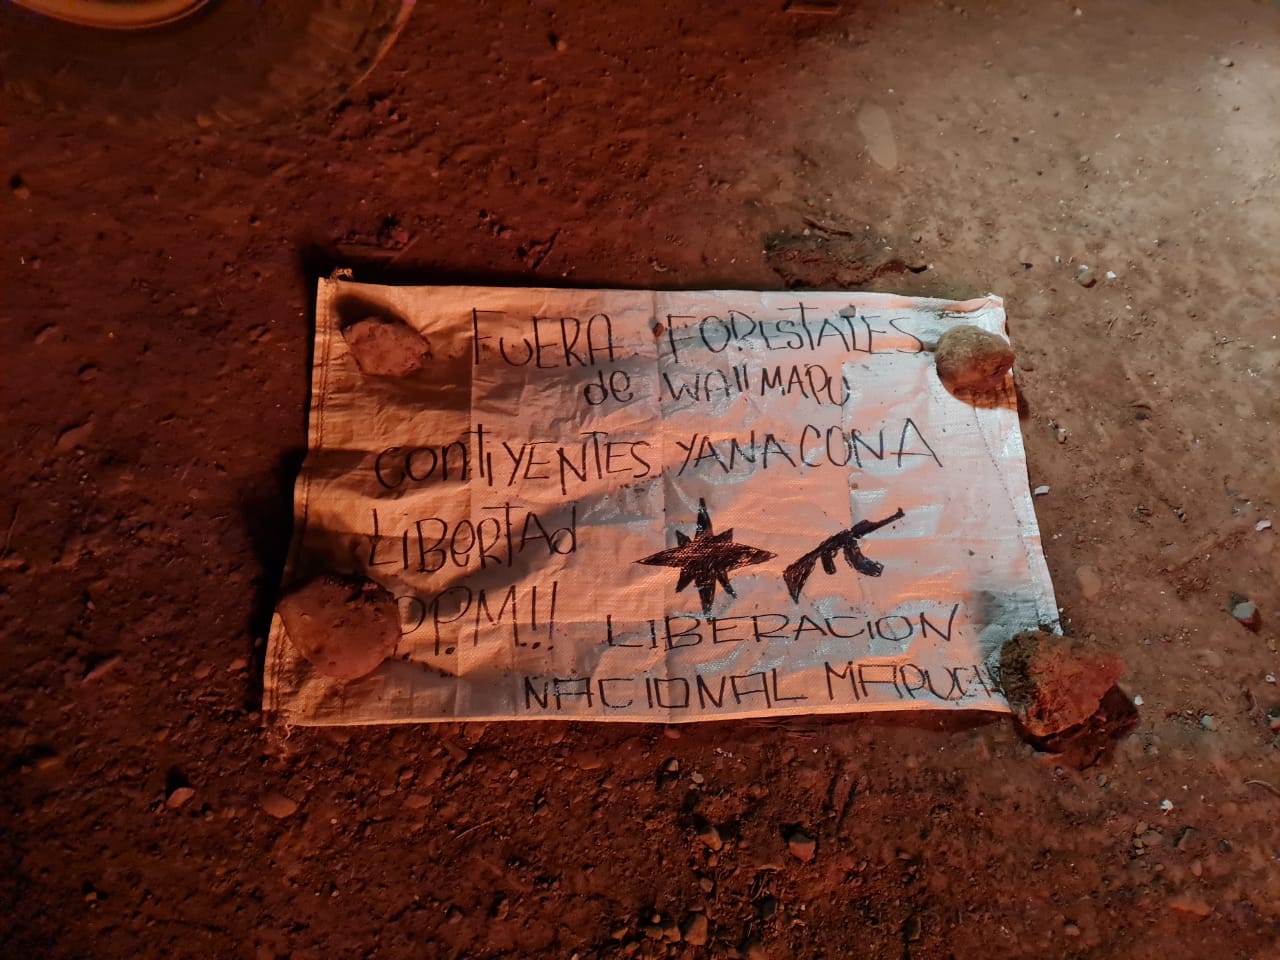 FUERA FORESTALES
de WAllMAPU
CONTIYENTES YANACONA
LIBERTAd
P.P.M!!
LIBERACION
NACIONAL MAPUCHE